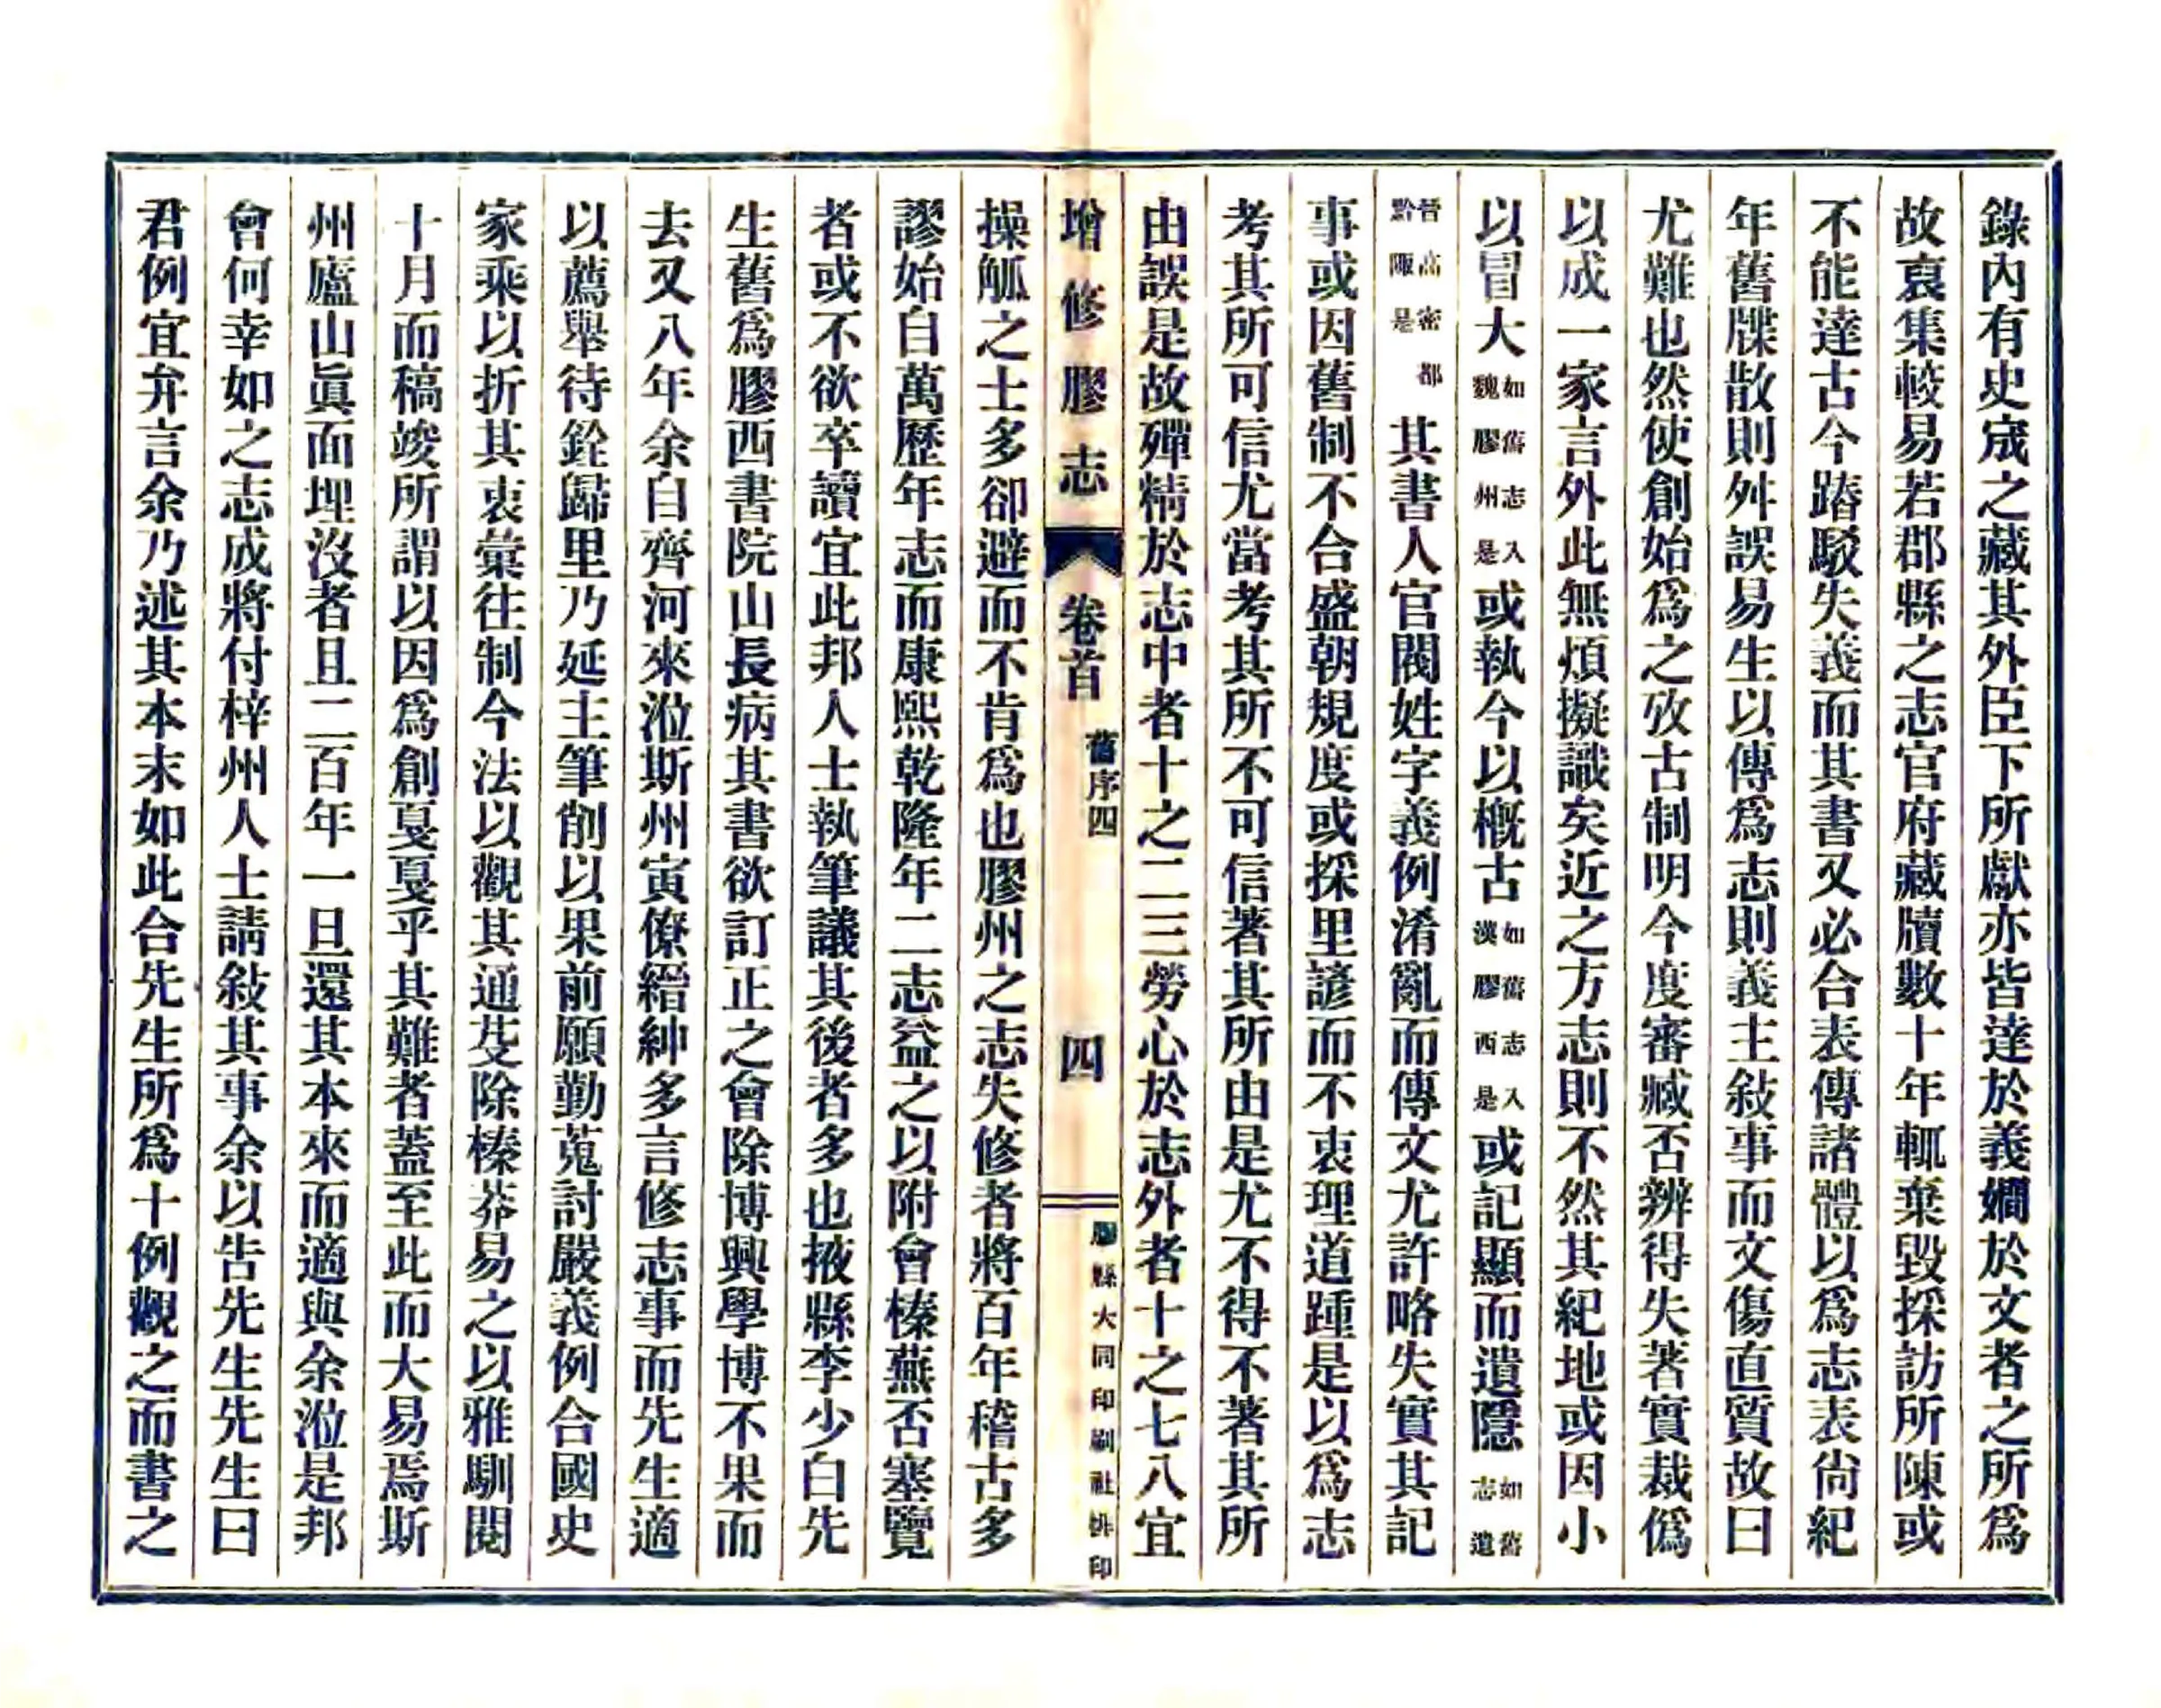 錄內有史宬之藏其外臣下所獻亦皆達於義嫺於文者之所爲
故裒集較易若郡縣之志官府藏牘數十年輒棄毀採訪所陳或
不能達古今踳駁失義而其書又必合表傳諸體以爲志表尙紀
年舊牒散則舛誤易生以傳爲志則義主敍事而文傷直質故曰
尤難也然使創始爲之攷古制明今度審臧否辨得失著實裁僞
以成一家言外此無煩擬議矣近之方志則不然其紀地或因小
以冒大如舊志入魏膠州是或執今以概古如舊志入漢膠西是或記顯而遺隱如舊志遺
晉高密都黔陬是其書人官閥姓字義例淆亂而傳文尤許略失實其記
事或因舊制不合盛朝規度或採里諺而不衷理道踵是以爲志
考其所可信尤當考其所不可信著其所由是尤不得不著其所
由誤是故殫精於志中者十之二三勞心於志外者十之七八宜
增修膠志 卷首 舊序四 四 膠縣大同印刷社排印
操觚之士多卻避而不肯爲也膠州之志失修者將百年稽古多
謬始自萬歷年志而康熙乾隆年二志益之以附會榛蕪否塞覽
者或不欲卒讀宜此邦人士執筆議其後者多也掖縣李少白先
生舊爲膠西書院山長病其書欲訂正之會除博興學博不果而
去又八年余自齊河來涖斯州寅僚縉紳多言修志事而先生適
以薦舉待銓歸里乃延主筆削以果前願勤蒐討嚴義例合國史
家乘以折其衷彙往制今法以觀其通芟除榛莽易之以雅馴閱
十月而稿竣所謂以因爲創戛戛乎其難者蓋至此而大易焉斯
州廬山眞面埋沒者且二百年一旦還其本來而適與余涖是邦
會何幸如之志成將付梓州人士請敍其事余以告先生先生曰
君例宜弁言余乃述其本末如此合先生所爲十例觀之而書之